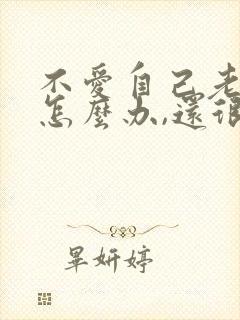 不愛自己老
怎麼办,還很
畢妍婷